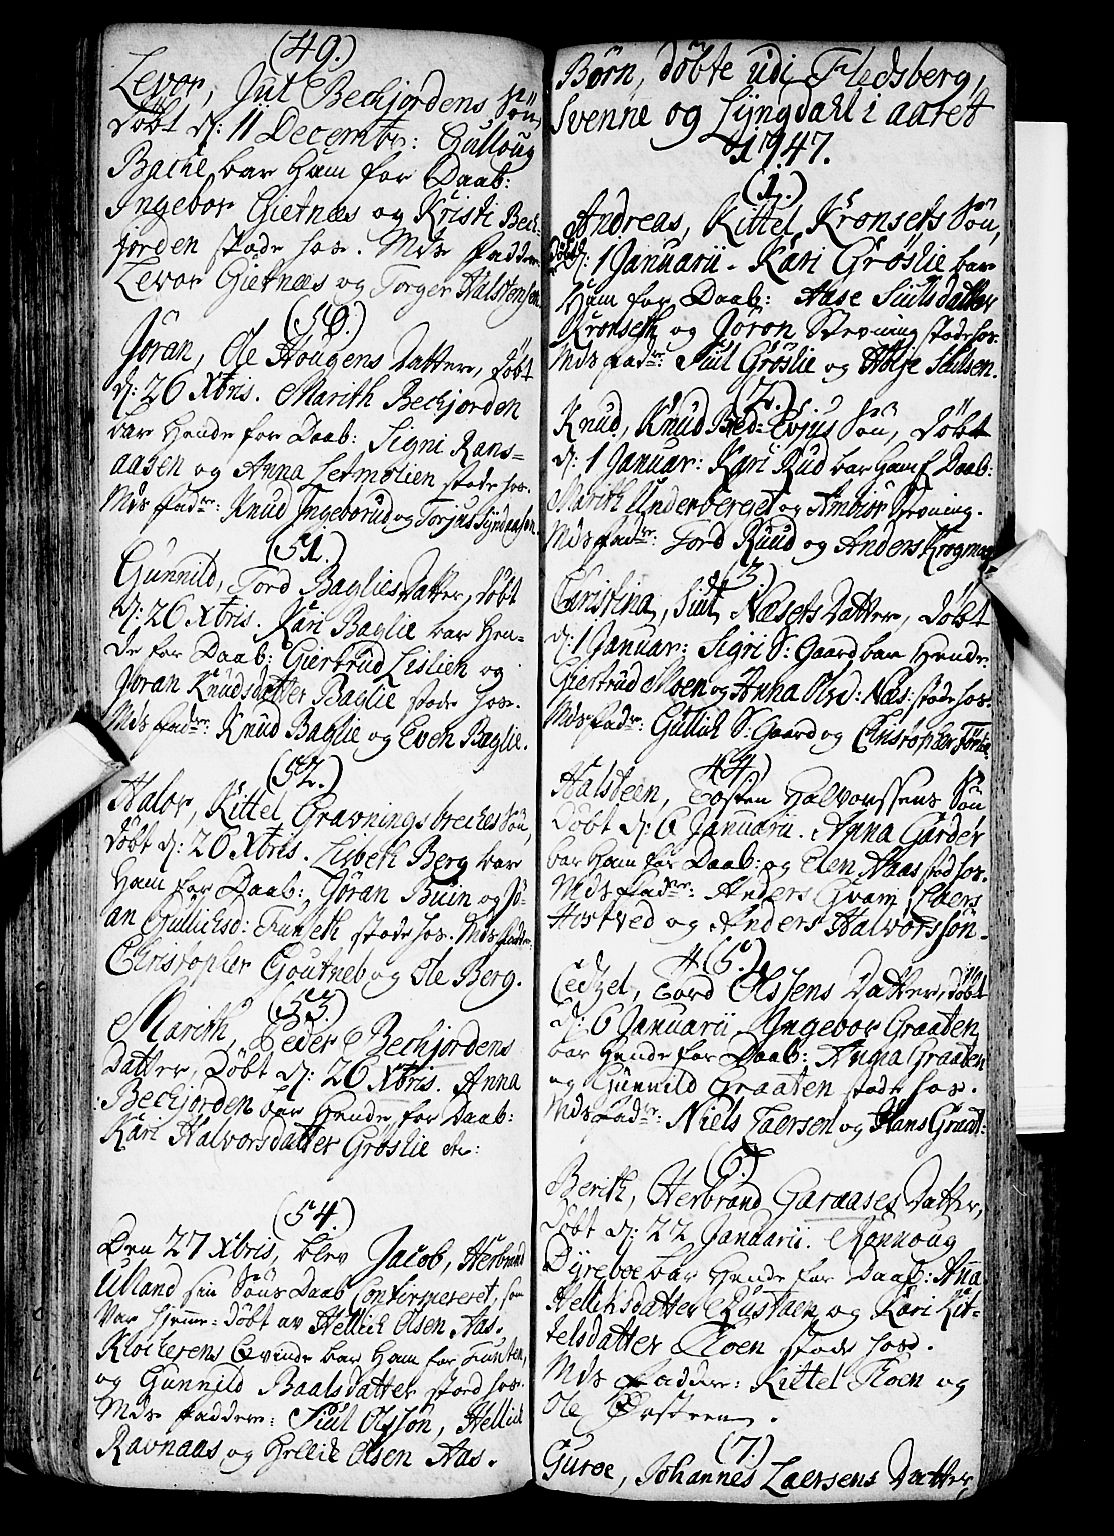 (49.)
Levor, Juul Beckjordens Søn,
Døbt d: 11 Decembr: Gulloug
Bache bar Ham for Daab:
Ingebor Gietnæs og Kristi Beck-
jorden stode hos. Mds Faddere
Levor Gietnæs og Torger Halstensen
(50.)
Jøran, Ole Hougens Datter, Døbt
d: 26 Xbris. Marith Beckjorden
bar Hende for Daab: Signi Rans-
aasen og Anna Letmolien stode hos.
Mds Fadr: Knud Ingeborud og Torjus
(51.)
Gunnild, Tord Baglies Datter, Døbt
d: 26 Xbris. Kari Baglie bar Hen-
de for Daab: Giertrud Lislien og
Jøran Knudsdatter Baglie stode hos.
Mds Fadr: Knud Baglie og Even Baglie.
(52.)
Halvor, Kittel Gravningsbreckes Søn,
Døbt d: 26 Xbris. Lisbeth Berg bar
Ham for Daab: Jøran Buin og Jø-
an Gullicksd: Funseth stode hos. Mds Fadr:
Christopher Goutneb og Ole Berg.
(53.)
Marith, Peder Beckjordens
Datter, Døbt d: 26 Xbris. Anna
Beckjorden bar Hende for Daab:
Kari Halvorsdatter Grøslie etc:
(54.)
Den 27 Xbris, blev Jacob, Herbrand
Ulland sin Søns Daab Confirmeret, som
Var hjemme-døbt av Hellick Olsen Aas.
Klockerens Qvinde bar Ham for Funten,
og Gunnild Baalsdatter stod hos.
Mds Faddere: Juul Olssøn, Hellick
Ravnaas og Hellick Olsen Aas.
Børn, døbte udi Fledsberg,
Svenne og Lyngdahl i aaret
1747.
(1.)
Andreas, Kittel Kronseths Søn,
Døbt d: 1 Januarii. Kari Grøslie bar
Ham for Daab: Aase Juulsdatter
Kronseth og Jøron Stevning stode hos.
Mds Fadr: Juul Grøslie og Juulsen.
(2.)
Knud, Knud Bred-Evjus Søn, Døbt
d: 1 Januar: Kari Rud bar Ham f. Daab:
Marith Underberget og Ambiør Stevning.
Mds Fadr: Tord Ruud og Anders Krogman
(3.)
Christina, Juul Næsets Datter, Døbt
d: 1 Januar: Sigri S: Gaard bar Hende
Giertrud Moen og Anna Olsd: Næs: stode hos.
Mds Fadr: Gullick S: Gaard og Christopher
(4.)
Halsteen, Tosten Halvorssens Søn
Døbt d: 6 Januarii. Anna Garder
bar Ham for Daab: og Elen Aaas stod hos.
Mds Fadr: Anders Qvam, Laers
Hostved og Anders Halvorssøn.
(5.)
Cedzel, Tord Olssens Datter, Døbt
d: 6 Januarii. Ingebor Graaten
bar Hende for Daab: Anna Graaten
og Gunnild Graaten stode hos.
Mds Fadr: Niels Laersen og Hans Graat:
(6.)
Berith, Herbrand Garaases Datter,
Døbt d: 22 Januarii. Rannoug
Dyreboe bar Hende for Daab: Anna
Hellicksdatter Rustaen og Kari Kit-
telsdatter Floen stode hos.
Mds Faddere: Kittel Floen og
Ole Ørsteen.
(7.)
Guroe, Johannes Laersens Datter,